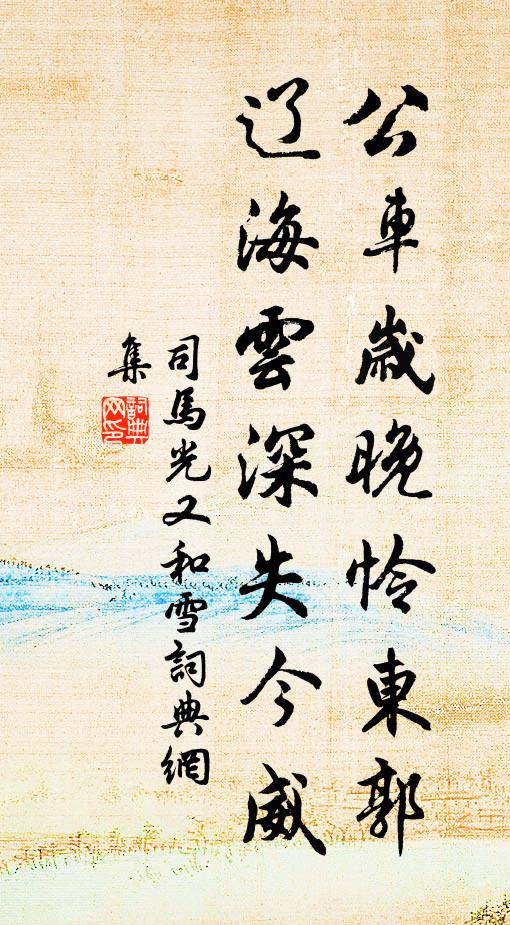 公車歲晚怜東郭
辽海雲深失今威
司馬光又和雪詞典網
集
詞典网印